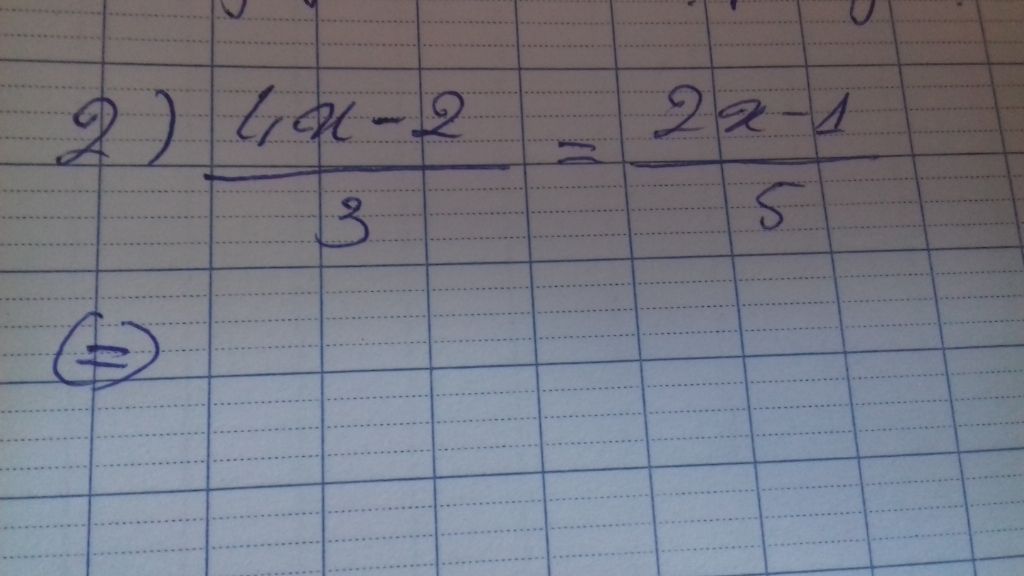 2) (4x-2)/3 = (2x-1)/5
(=)